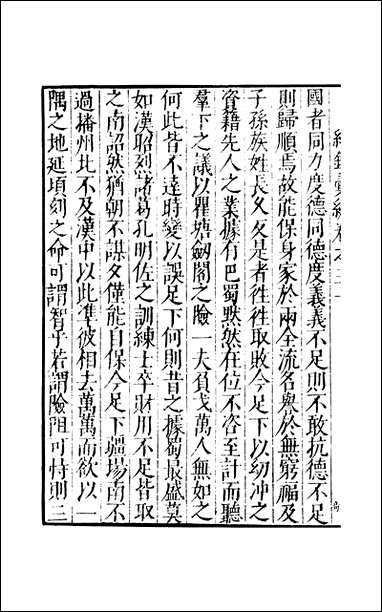 國者同力度德同德度義義不足則不敢抗德不足
則歸順焉故能保身家於兩全流名譽於無窮福及
子孫族姓長久反是者徃徃取敗今足下以幼冲之
資藉先人之業據有巴蜀黙然在位不咨至計而聽
羣下之議以瞿塘劔閣之險一夫負戈萬人無如之
何此皆不達時變以誤足下何則昔之據蜀最盛莫
如漢昭烈諸葛孔明佐之訓練士卒財用不足皆取
之南詔然猶朝不謀夕僅能自保今足下疆場南不
過播州北不及漢中以此準彼相去萬萬而欲以一
隅之地延頃刻之命可謂智乎若謂險阻可恃則三